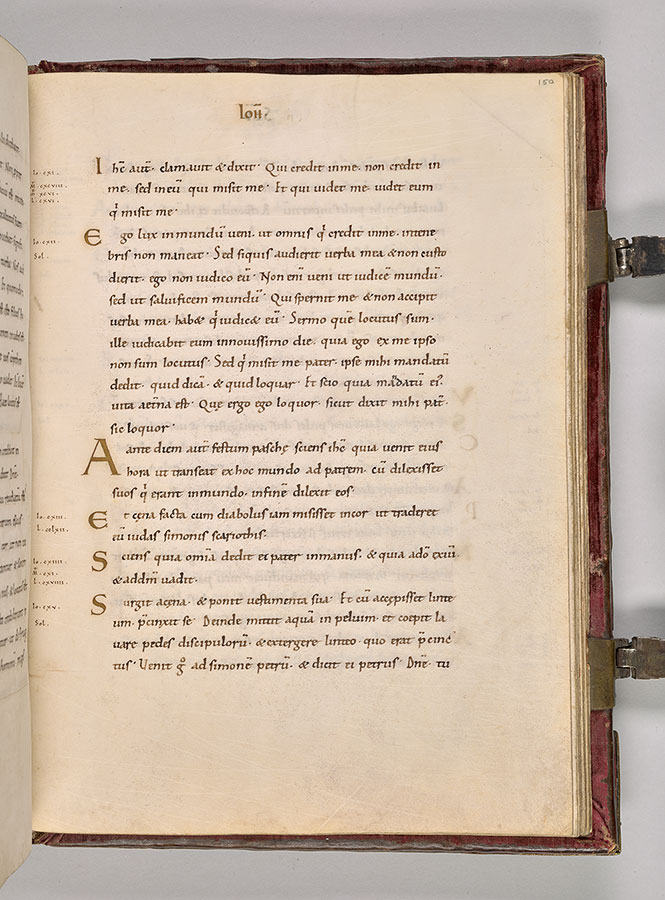 150
Ioħ
Ihc̄ aut̄. clamauit & dixit. Qui credit in me. non credit in
me. sed in eū qui misit me. Et qui uidet me. uidet eum
q̄ misit me.
Ego lux in mundū ueni. ut omnis q̄ credit in me. in tene
bris non maneat. Sed siquis audierit uerba mea & non custo
dierit. ego non iudico eū. Non enī ueni ut iudicē mundū.
sed ut saluificem mundū. Qui spernit me & non accipit
uerba mea. hab& q̄ iudic& eū. Sermo quē locutus sum.
ille iudicabit eum in nouissimo die. quia ego ex me ipso
non sum locutus. Sed q̄ misit me pater. ipse mihi mandatū
dedit. quid dicā. & quid loquar. Et scio quia mādatū ei'.
uita aet̄na est. Quę ergo ego loquor. sicut dixit mihi pat̄.
sic loquor.
Aante diem aut̄ festum paschę sciens ihc̄ quia uenit eius
hora ut transeat ex hoc mundo ad patrem. cū dilexisset
suos q̄ erant in mundo. in finē dilexit eos.
Et cęna facta cum diabolus iam misisset in cor ut traderet
eū iudas simonis scariothis.
Sciens quia omīa dedit ei pater in manus. & quia a dō exiuī
& ad dm̄ uadit.
Surgit a cęna. & ponit uestimenta sua. Et cū accępisset linte
um. p̄cinxit se. Deinde mittit aquā in peluim. et coepit la
uare pedes discipulorū. & extergere linteo. quo erat p̄cinc
tus. Uenit g° ad simonē petrū. & dicit ei petrus. Dn̄e. tu
Io. cxi.
Io. cxii.
Sol.
Io. cxiii.
L. cclxii.
Io. cxiiii.
Io. cxv.
Sol.